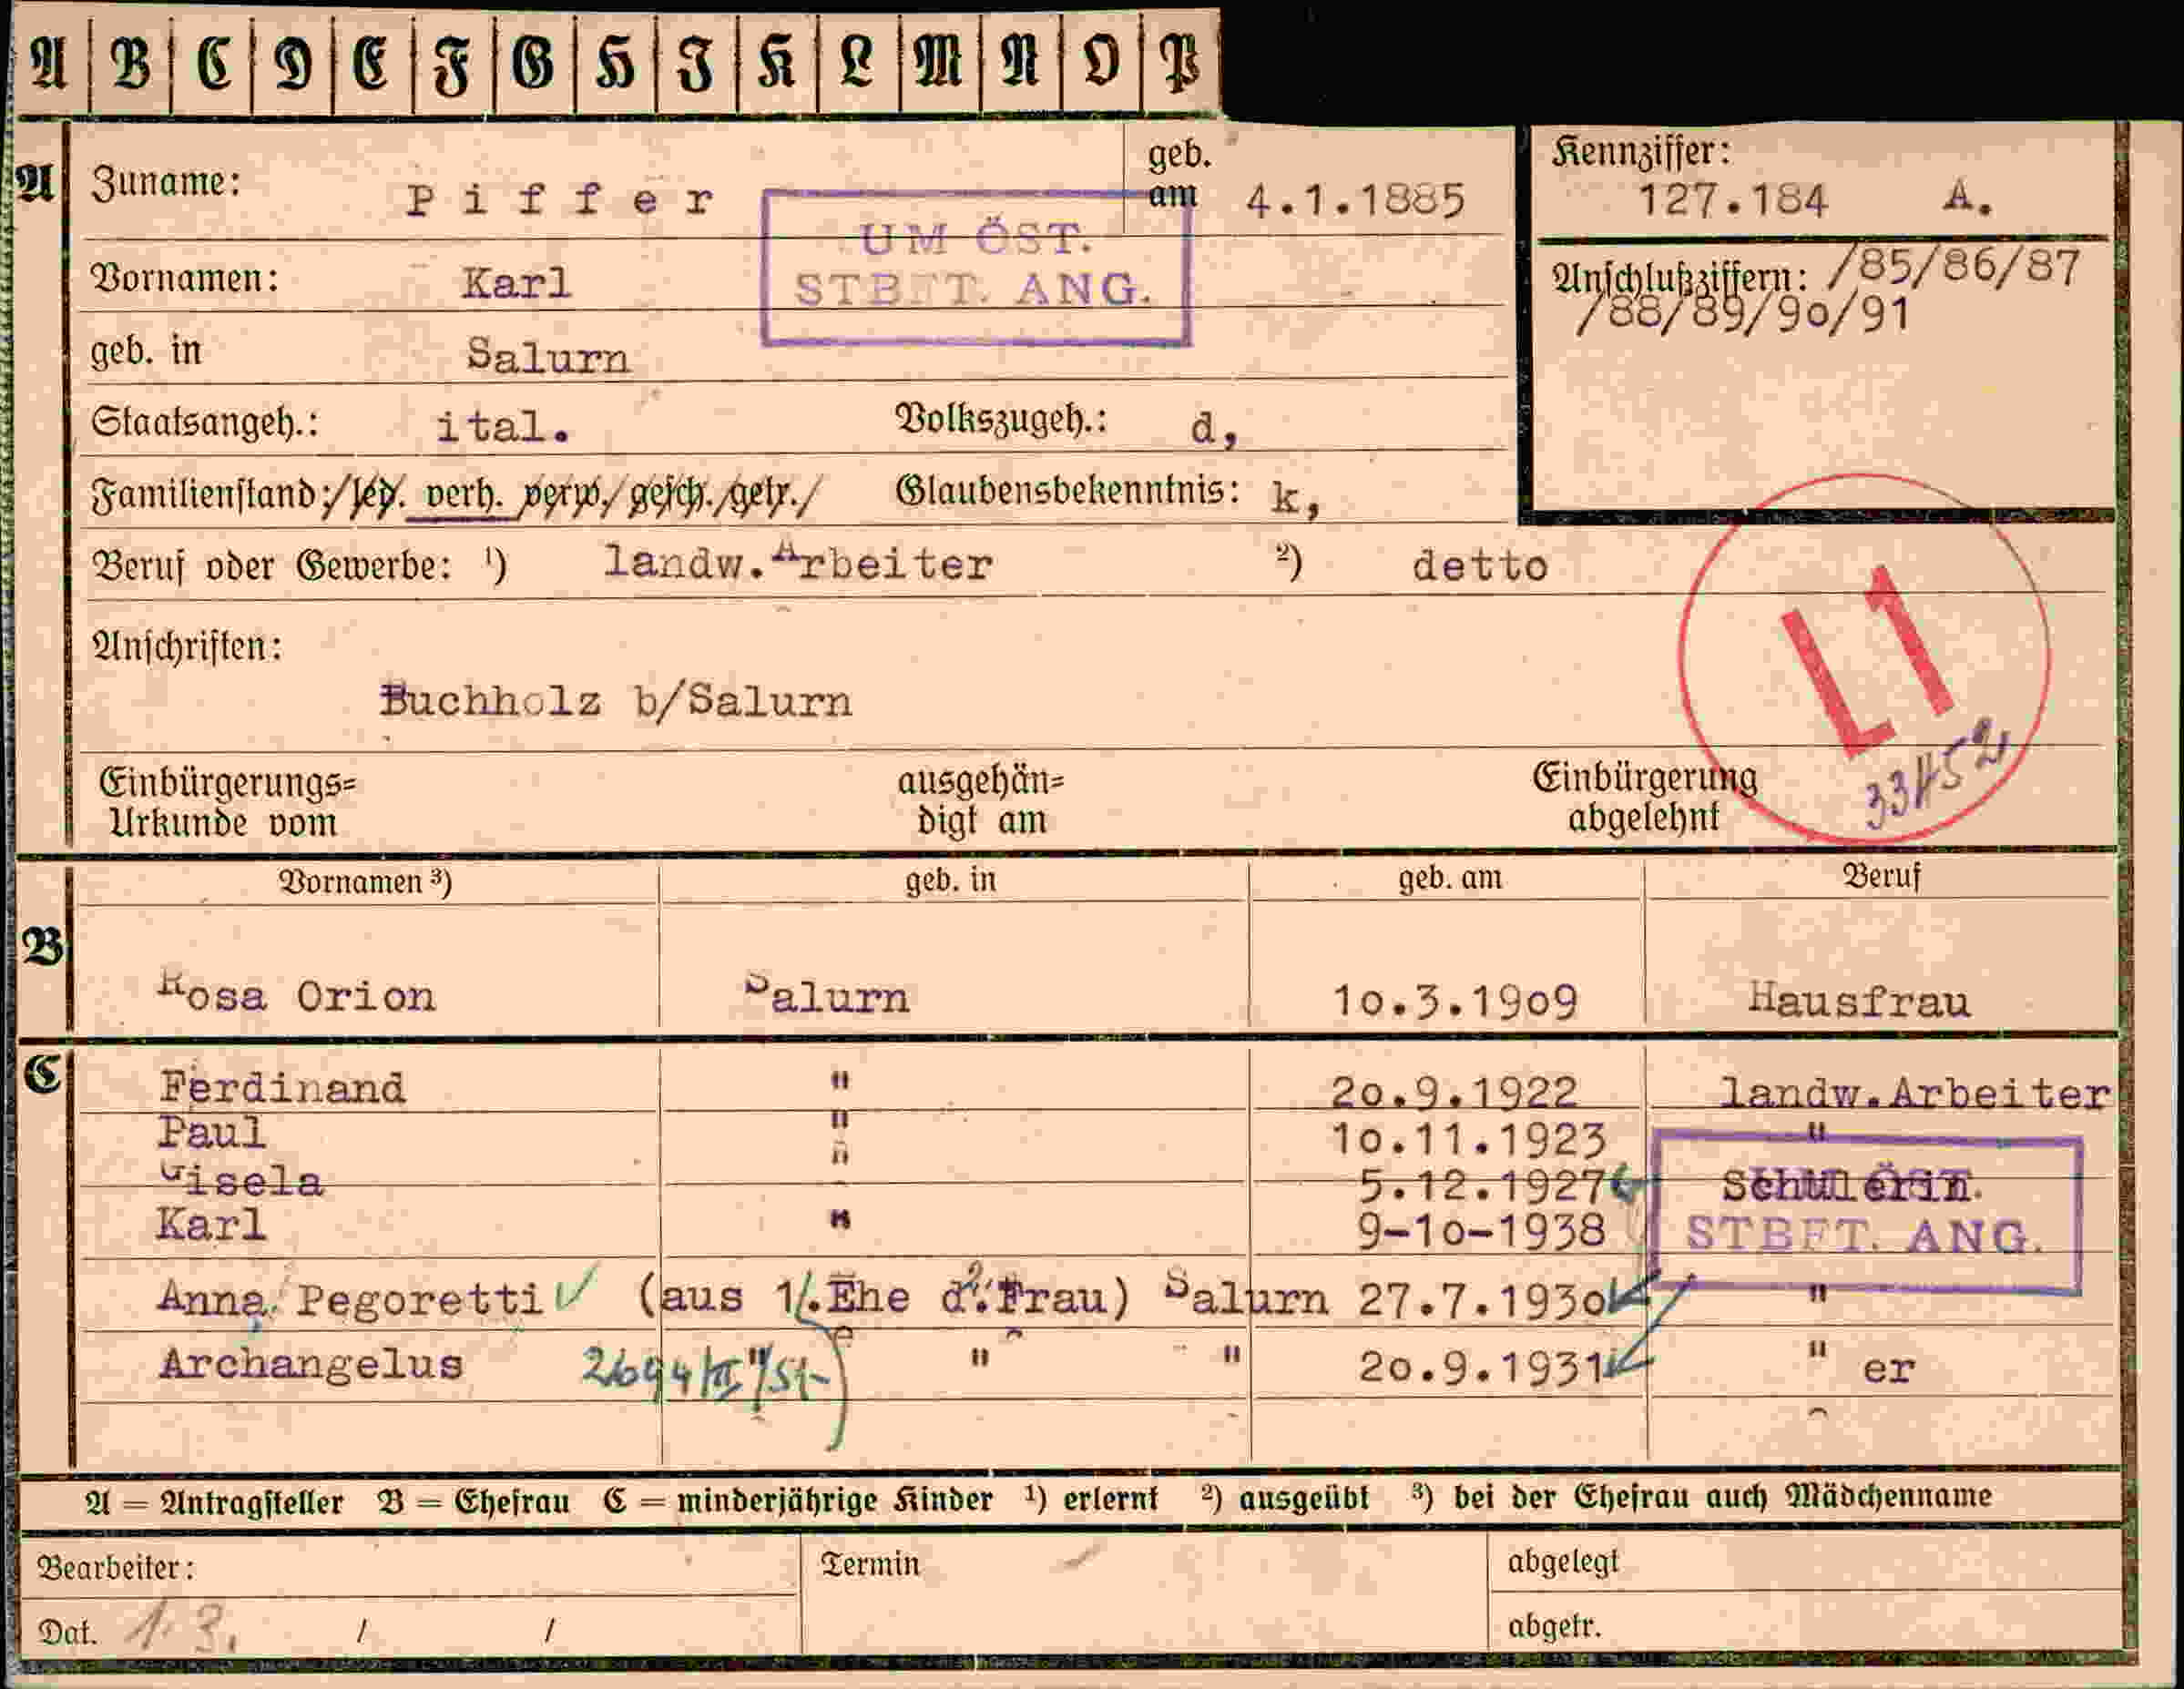 A B C D E F G H J K L M N O P
A Zuname: Piffer geb. am 4.1.1885
Kennziffer: 127.184 A.
UM ÖST.
STBFT. ANG.
Vornamen: Karl
Anschlußziffern: /85/86/87
/88/89/90/91
geb. in Salurn
Staatsangeh.: ital. Volkszugeh.: d,
Familienstand: /led. verh. verw./gesch./getr./ Glaubensbekenntnis: k,
Beruf oder Gewerbe: 1) landw.Arbeiter 2) detto
L1
Anschriften:
Buchholz b/Salurn
Einbürgerungs= Urkunde vom
ausgehän= digt am
Einbürgerung abgelehnt
B Vornamen 3) geb. in geb. am Beruf
Rosa Orion Salurn 10.3.1909 Hausfrau
C Ferdinand " 20.9.1922 landw.Arbeiter
Paul " 10.11.1923 "
Gisela " 5.12.1927 Schülerin
Karl " 9-10-1938
STBFT. ANG.
Anna Pegoretti (aus 1. Ehe d. Frau) Salurn 27.7.1930 "
Archangelus " " " 20.9.1931 " er
A = Antragsteller B = Ehefrau C = minderjährige Kinder 1) erlernt 2) ausgeübt 3) bei der Ehefrau auch Mädchenname
Bearbeiter: Termin abgelegt
Dat. 1.3. / / abgetr.